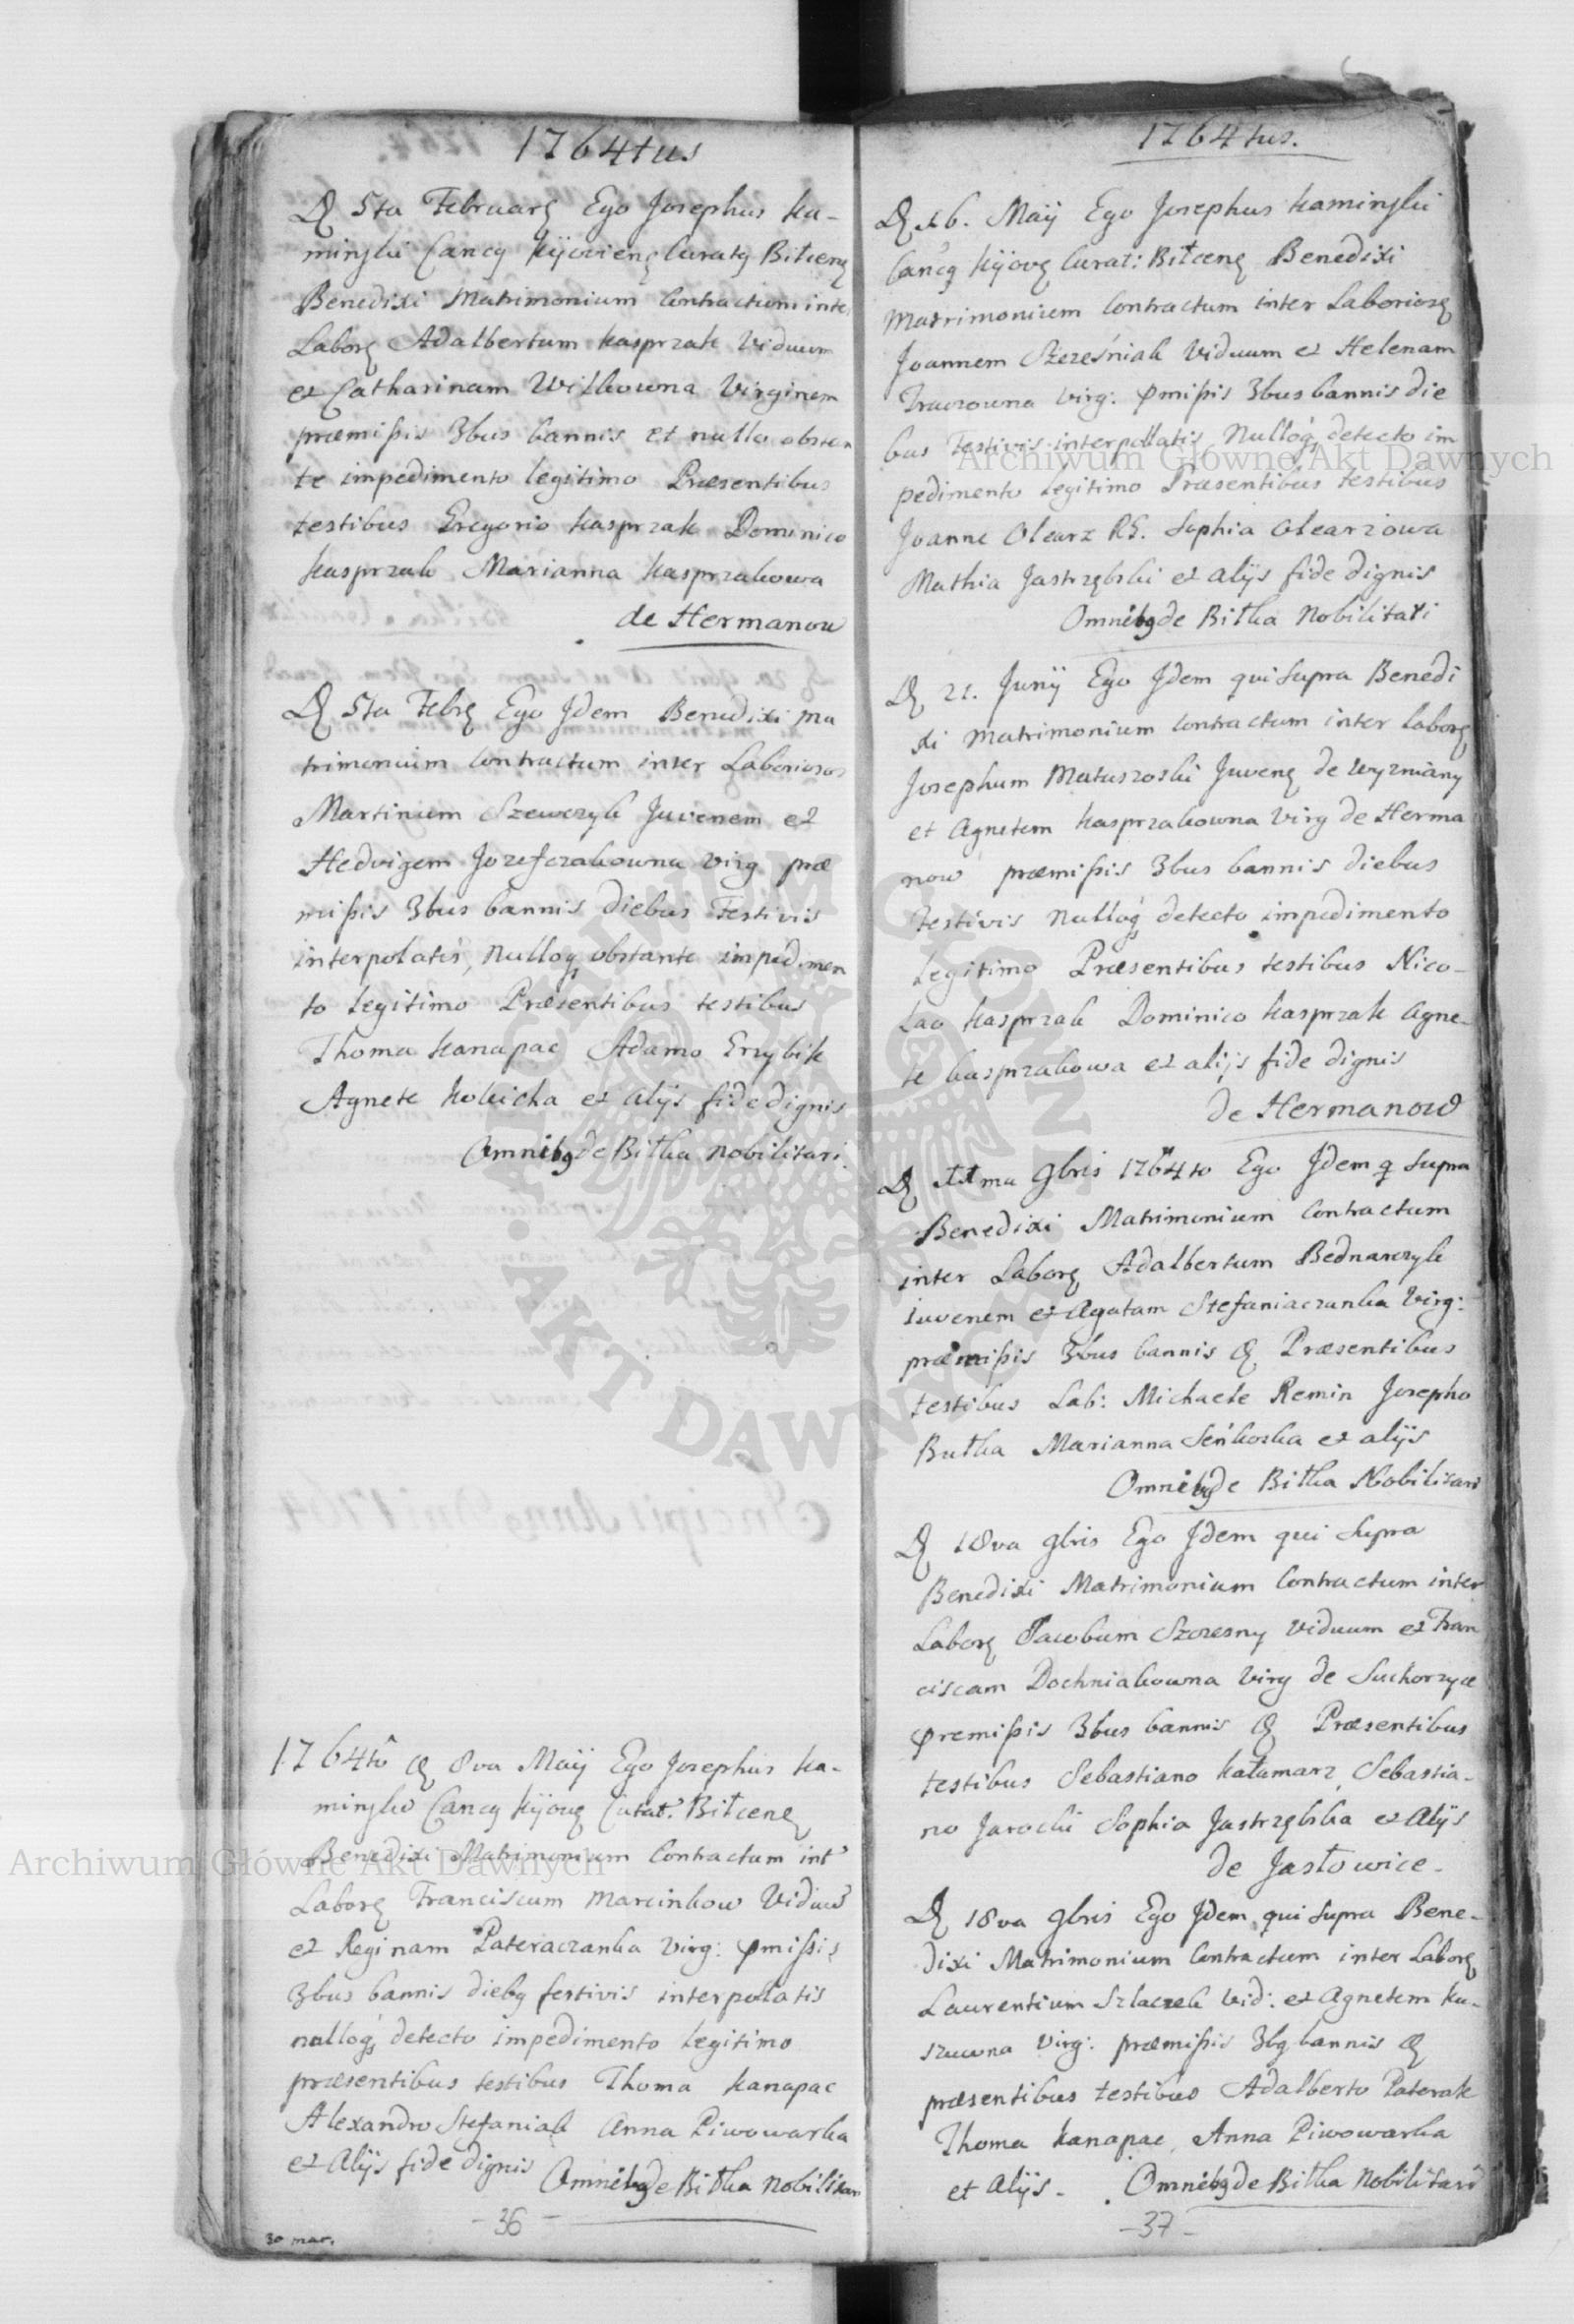 1764tus
D 5ta Februarẹ Ego Josephus Ka-
minski Cancq Kijovienẹ Curatq Biłcenẹ
Benedixi Matrimonium Contractum inter
Laborẹ Adalbertum Kasprzak Viduum
et Catharinam Wilkowna Virginem
præmißis 3bus bannis et nullo obstan
te impedimento legitimo Præsentibus
testibus Gregorio Kasprzak Dominico
Kasprzak Marianna Kasprzakowa
de Hermanow
D 5ta Febrẹ Ego Jdem Benedixi ma
trimonium Contractum inter Laboriosos
Martinum Szewczyk Juvenem et
Hedvigem Jozefczakowna virg præ
mißis 3bus bannis diebus Festivis
interpolatis, nulloq obstante impedimen
to legitimo Præsentibus testibus
Thoma Kanapac Adamo Grzybik
Agnete Kobicha et alijs fide dignis
Omnibq de Biłka Nobilitari.
1764to D 8va Maij Ego Josephus Ka-
minsky Cancq Kijovẹ Curat: Biłcenẹ
Benedixi Matrimonium Contractum int
Laborẹ Franciscum Marcinkow Viduũ
et Reginam Pateraczanka Virg: pmißis
3bus bannis diebq festivis interpollatis
nulloq detecto impedimento legitimo
præsentibus testibus Thoma Kanapac
Alexandro Stefaniak Anna Piwowarka
et Alijs fide dignis Omnibq de Biłka Nobilitari
- 36 -
30 mar.
1764tus.
D 16. Maij Ego Josephus Kaminski
Cancq Kijovẹ Curat: Biłcenẹ Benedixi
Matrimonium Contractum inter Laboriosẹ
Joannem Szcześniak Viduum et Helenam
Traczowna virg: pmißis 3bus bannis die
bus Festivis interpollatis Nulloq detecto im
pedimento legitimo Præsentibus testibus
Joanne Olearz RS. Sophia Olearzowa
Mathia Jastrzębski et alijs fide dignis
Omnibq de Biłka Nobilitari
D 21. Junij Ego Jdem qui Supra Benedi
xi Matrimonium Contractum inter Laborẹ
Josephum Matuszoski Juvenẹ de Wyzniany
et Agnetem Kasprzakowna Virg de Herma
now præmißis 3bus bannis diebus
festivis Nulloq detecto impedimento
legitimo Præsentibus testibus Nico-
lao Kasprzak Dominico Kasprzak Agne-
te Kasprzakowa et alijs fide dignis
de Hermanow
D 11ma 9bris 1764to Ego Jdem q Supra
Benedixi Matrimonium Contractum
inter Laborẹ Adalbertum Bednarczyk
iuvenem et Agatam Stefaniaczanka Virg:
præmißis 3bus bannis & Præsentibus
testibus Lab: Michaele Remin Josepho
Butka Marianna Seńkoska et alijs
Omnibq de Biłka Nobilitari
D 18va 9bris Ego Jdem qui Supra
Benedixi Matrimonium Contractum inter
Laborẹ Jacobum Szczesny Viduum et Fran
ciscam Dochniakowna Virg de Suchorzyce
premißis 3bus bannis & Præsentibus
testibus Sebastiano Kałamarz Sebastia-
no Jarocki Sophia Jastrzębska et Alijs
de Jasłowice.
D 18va 9bris Ego Jdem qui Supra Bene-
dixi Matrimonium Contractum inter Laborẹ
Laurentium Szlaczek Vid: et Agnetem Ku-
szuwna Virg: præmißis 3bq bannis &
præsentibus testibus Adalberto Paterak
Thoma Kanapac, Anna Piwowarka
et Alijs. Omnibq de Biłka Nobilitari
- 37 -
Archiwum Główne Akt Dawnych
Archiwum Główne Akt Dawnych
ARCHIWUM GŁÓWNE AKT DAWNYCH